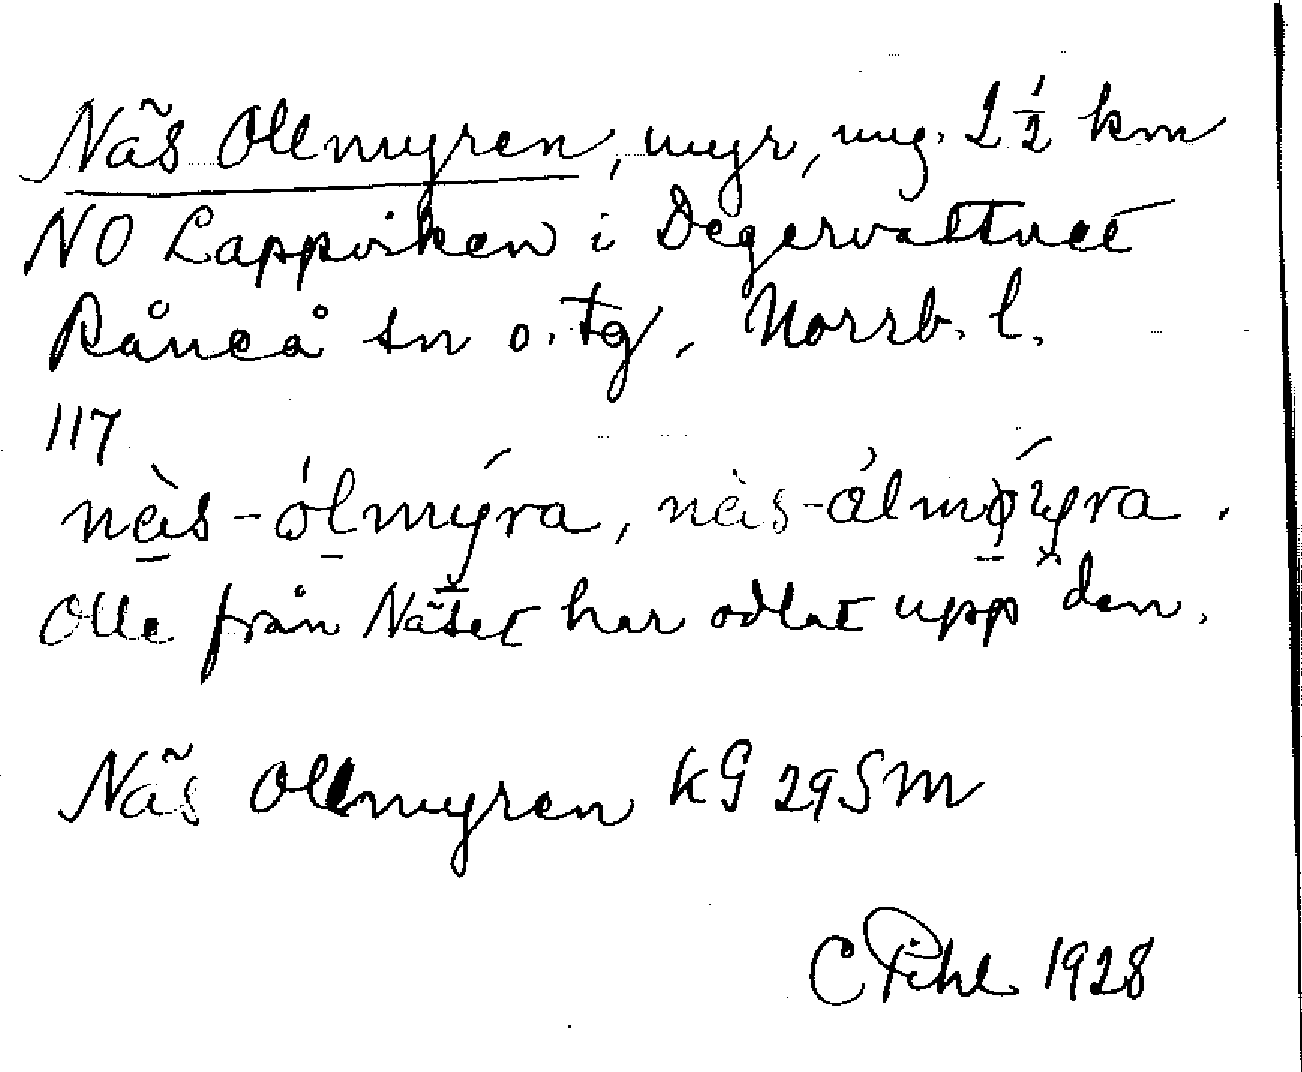 Näs Ollmyren, myr, ung. 2 ½ km
NO Lappviken i Degervattnet
Råneå sn o. tg, Norrb. l.
117
nès-ólmýra, nès-álmýra.
Olle från Näset har odlat upp den.
Näs Ollmyren KG 29 SM
C Pihl 1928